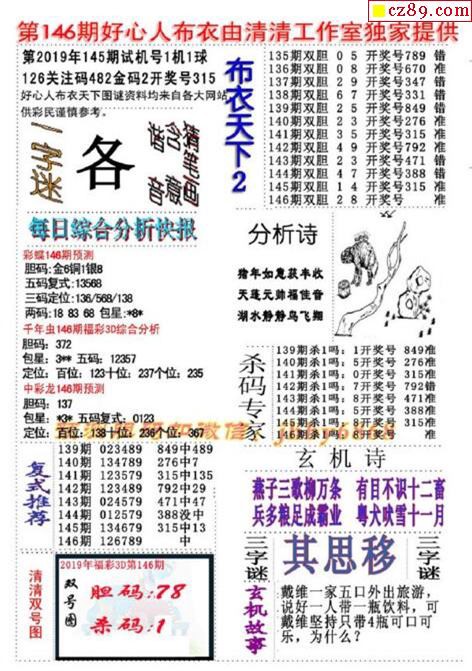 cz89.com
第146期好心人布衣由清清工作室独家提供
第2019年145期试机号1机1球
126关注码482金码2开奖号315
好心人布衣天下图谜资料均来自各大网站
供彩民谨慎参考。
一字迷
各
猜谐音
含寓意
猜笔画
布衣天下2
135期双胆 0 5 开奖号789 错
136期双胆 0 8 开奖号670 准
137期双胆 2 9 开奖号347 错
138期双胆 6 7 开奖号331 错
139期双胆 2 5 开奖号849 错
140期双胆 2 3 开奖号276 准
141期双胆 4 5 开奖号315 准
142期双胆 4 9 开奖号792 准
143期双胆 2 3 开奖号471 错
144期双胆 4 7 开奖号388 错
145期双胆 1 4 开奖号315 准
146期双胆 2 8 开奖号 准
每日综合分析快报
彩蝶146期预测
胆码:金6铜1银8
五码复式:13568
三码定位:136/568/138
两码:18 83 68 包星:*8*
千年虫146期福彩3D综合分析
胆码: 372
包星: 3** 五码: 12357
定位: 百位: 123十位: 237个位: 235
中彩龙146期预测
胆码: 137
包星: *3* 五码复式: 0123
定位: 百位: 138十位: 236个位: 367
分析诗
猪年如意获丰收
天蓬元帅福佳音
湖水静静鸟飞翔
杀码专家
139期杀1吗: 1开奖号 849准
140期杀1吗: 5开奖号 276准
141期杀1吗: 0开奖号 315准
142期杀1吗: 7开奖号 792错
143期杀1吗: 8开奖号 471准
144期杀1吗: 5开奖号 388准
145期杀1吗: 6开奖号 315准
146期杀1吗: 8开奖号 准
复式推荐
139期 023489 849中489
140期 134789 276中7
141期 134579 315中135
142期 123489 792中29
143期 024579 471中47
144期 012579 388没中
145期 134679 315中13
146期 126789 中
玄机诗
燕子三歌柳万条 有目不识十二畜
兵多粮足成霸业 粤犬吠雪十一月
清清双号图
2019年福彩3D第146期
双号图
胆码:78
杀码:1
三字谜
其思移
三字谜
玄机故事
戴维一家五口外出旅游,
说好一人带一瓶饮料, 可
戴维坚持只带4瓶可口可
乐, 为什么?